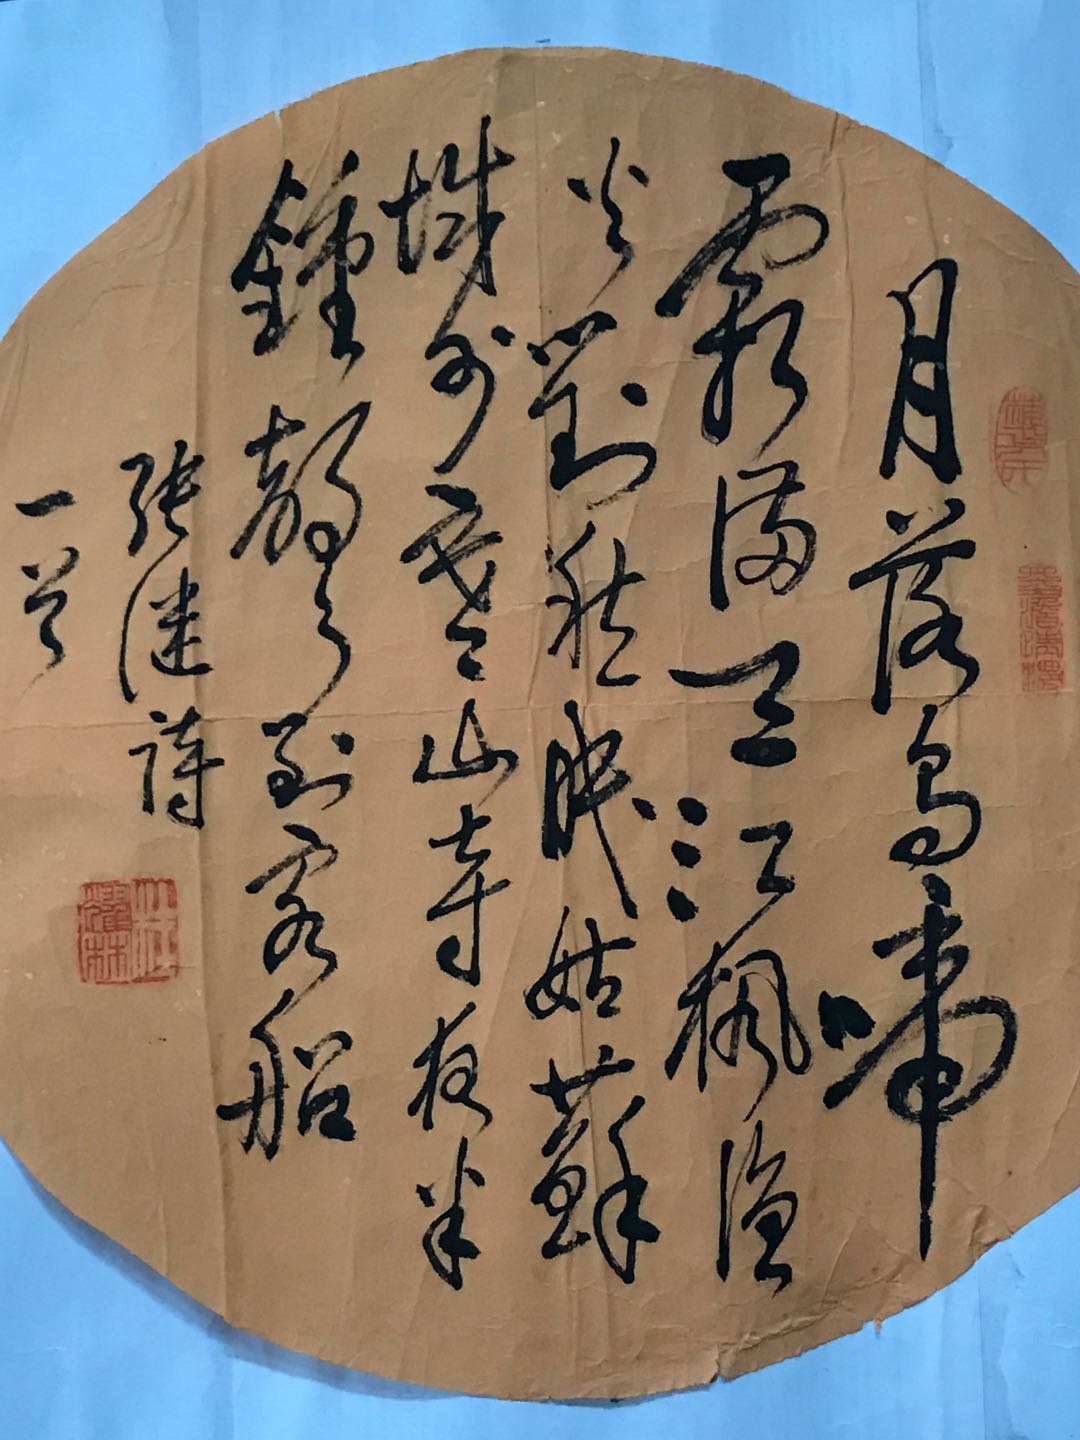 月落烏啼
霜滿天江楓漁
火對愁眠姑蘇
城外寒山寺夜半
鍾聲到客船
張継詩
一首